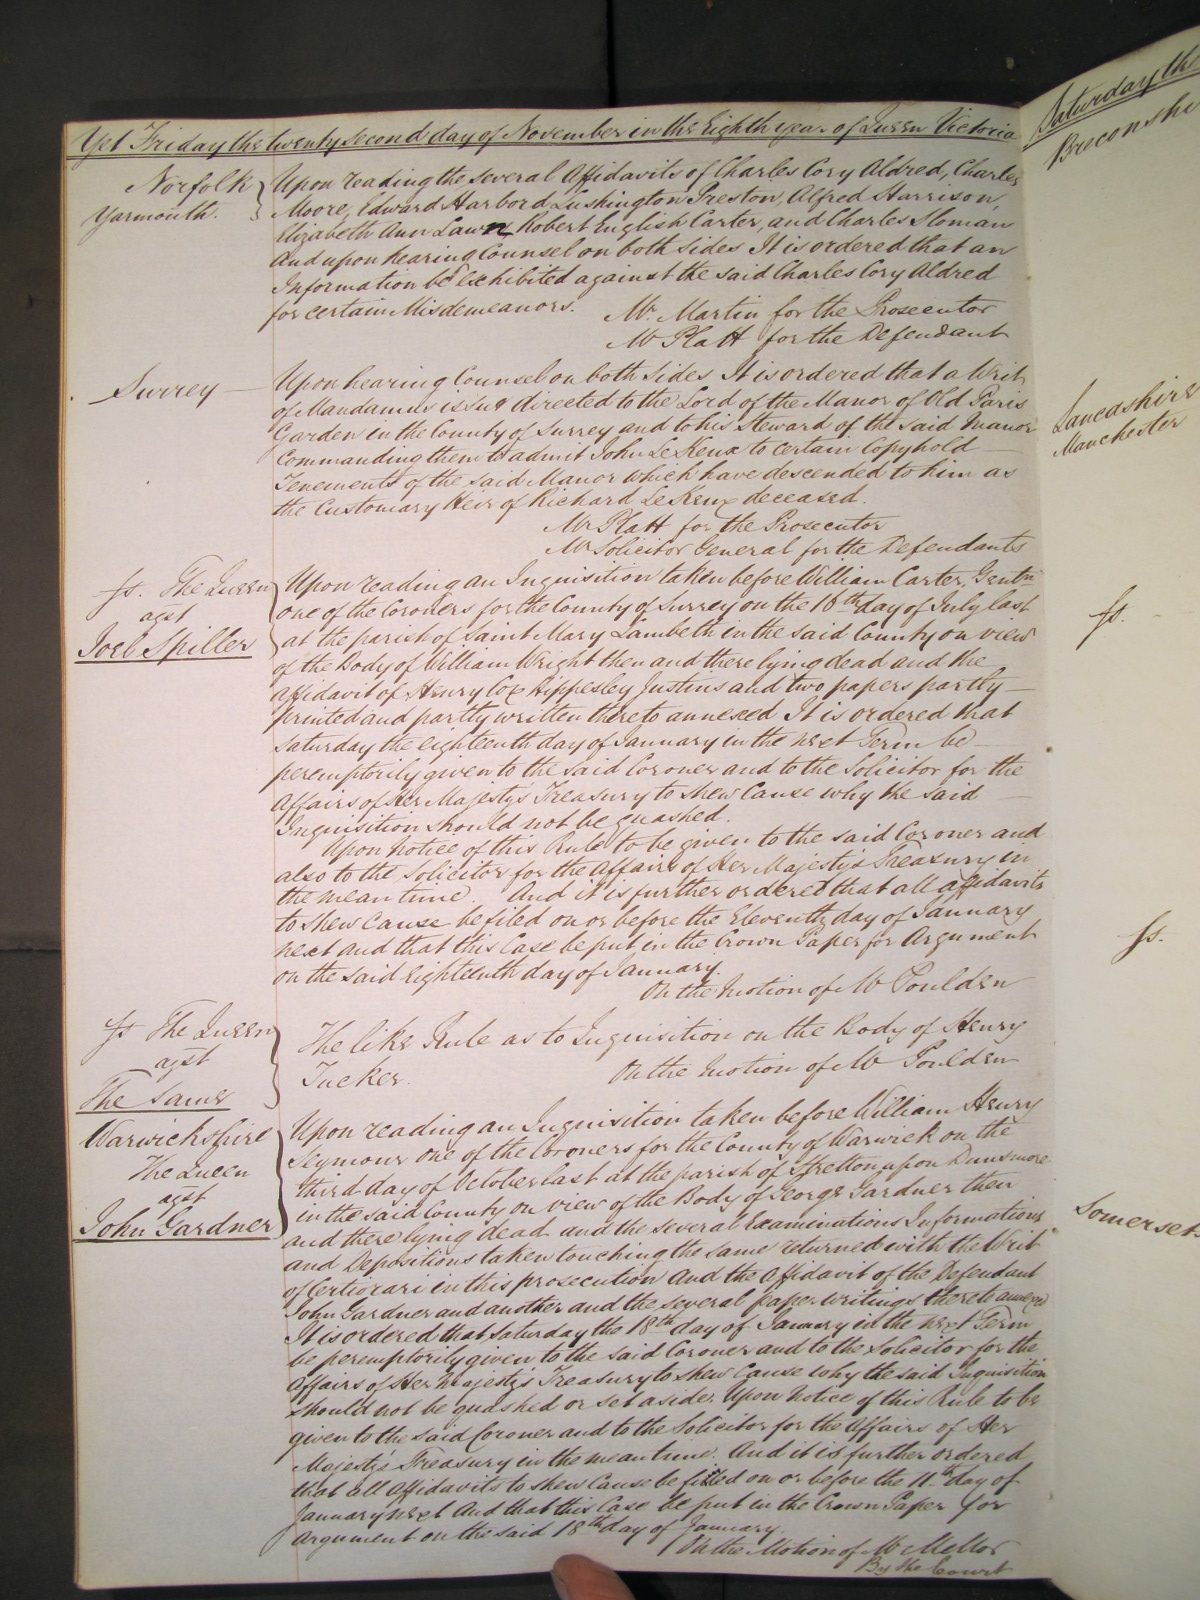 Yet Friday the twenty second day of November in the Eighth year of Queen Victoria
Norfolk
Yarmouth.
Upon reading the several Affidavits of Charles Cory Aldred, Charles
Moore, Edward Harbord Lushington Preston, Alfred Harrison,
Elizabeth Ann Lawn Robert English Carter, and Charles Sloman
And upon hearing Counsel on both sides It is ordered that an
Information be Exhibited against the said Charles Cory Aldred
for certain Misdemeanors.
Mr. Martin for the Prosecutor
Mr Platt for the Defendant
Surrey
Upon hearing Counsel on both sides It is ordered that a Writ
of Mandamus issue directed to the Lord of the Manor of Old Paris
Garden in the County of Surrey and to his Steward of the said Manor
Commanding them to admit John Le Keux to certain Copyhold
Tenements of the said Manor which have descended to him as
the Customary Heir of Richard Le Keux deceased.
Mr Platt for the Prosecutor
Mr Solicitor General for the Defendants
ss. The Queen
agst
Joel Spiller
Upon reading an Inquisition taken before William Carter, Gentn
one of the Coroners for the County of Surrey on the 18th day of July last
at the parish of Saint Mary Lambeth in the said County on view
of the Body of William Wright then and there lying dead and the
affidavit of Henry Cox Hippesley Justins and two papers partly
printed and partly written thereto annexed It is ordered that
Saturday the eighteenth day of January in the next Term be
peremptorily given to the said Coroner and to the Solicitor for the
Affairs of Her Majesty's Treasury to shew Cause why the said
Inquisition should not be quashed.
Upon Notice of this Rule to be given to the said Coroner and
also to the Solicitor for the Affairs of Her Majesty's Treasury in
the mean time. And it is further ordered that all affidavits
to shew Cause be filed on or before the Eleventh day of January
next and that this Case be put in the Crown Paper for Argument
on the said Eighteenth day of January.
On the Motion of Mr Poulden
ss The Queen
agst
The Same
The like Rule as to Inquisition on the Body of Henry
Tucker.
On the Motion of Mr Poulden
Warwickshire
The Queen
agst
John Gardner
Upon reading an Inquisition taken before William Henry
Seymour one of the Coroners for the County of Warwick on the
third day of October last at the parish of Stretton upon Dunsmore
in the said County on view of the Body of George Gardner then
and there lying dead and the several Examinations Informations
and Depositions taken touching the same returned with the Writ
of Certiorari in this prosecution And the Affidavit of the Defendant
John Gardner and another and the several paper writings thereto annexed
It is ordered that Saturday the 18th day of January in the next Term
be peremptorily given to the said Coroner and to the Solicitor for the
Affairs of Her Majesty's Treasury to shew Cause why the said Inquisition
should not be quashed or set aside. Upon Notice of this Rule to be
given to the said Coroner and to the Solicitor for the Affairs of Her
Majesty's Treasury in the mean time. And it is further ordered
that all affidavits to shew Cause be filed on or before the 11th day of
January next And that this Case be put in the Crown Paper for
Argument on the said 18th day of January.
On the Motion of Mr Mellor
By the Court
Saturday the
Breconshi
Lancashire
Manchester
ss.
ss.
Somerset